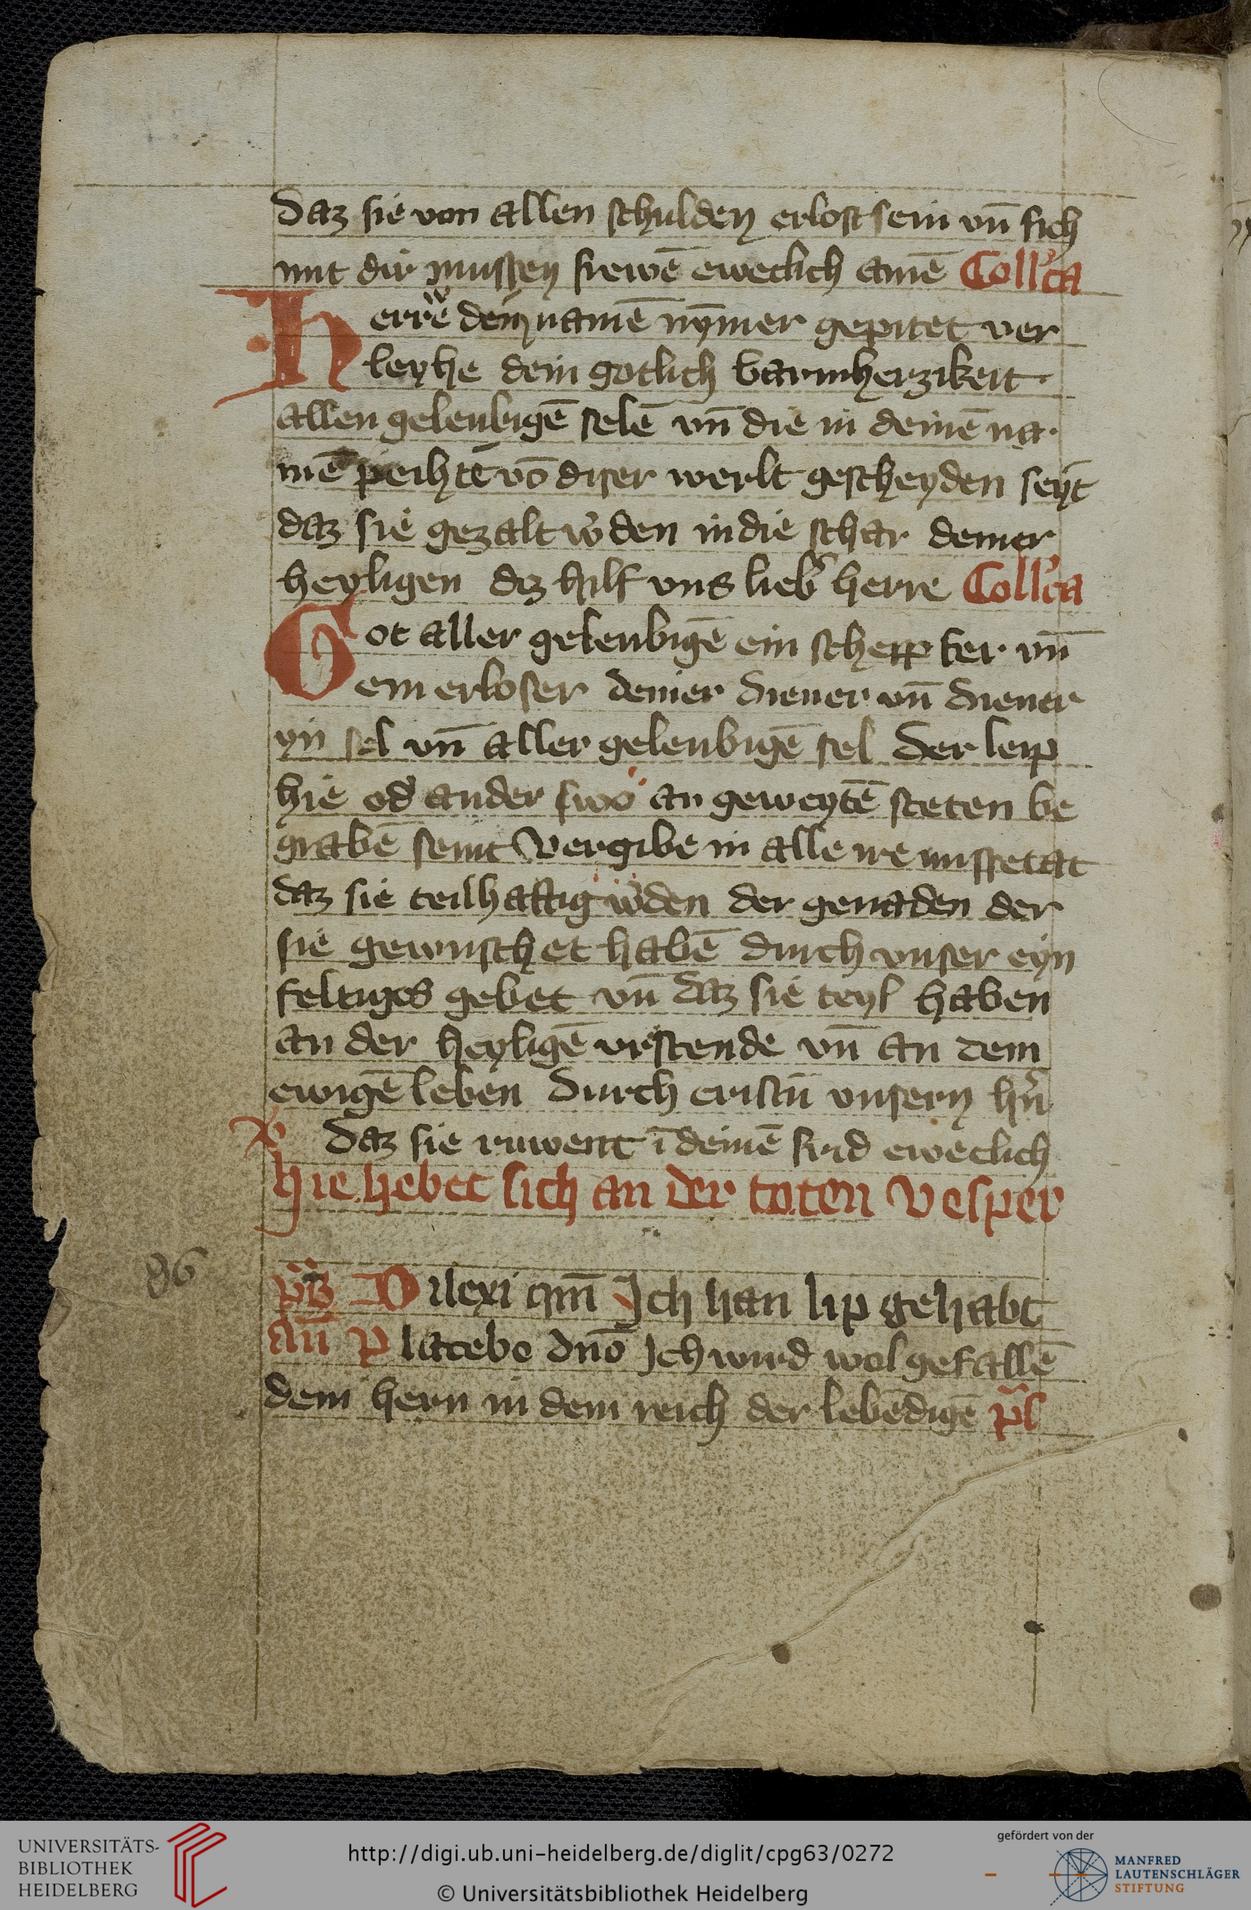 Daz sie von allen schulden erlost sein vn̄ sich
mit dir mussen frewē eweclich amē Coll'ca
Herre deīnamē nȳmer gepitet ver
leyhe dein gotlich barmherzikeit
allen geleubigē selē vn̄ die in deinē na
mē peihtē vō diser werlt gescheyden seyt
daz sie gezalt w'den in die schar deiner
heyligen dz hilf vns lieb' herre Coll'ca
Got aller geleubigē ein schepfer vn̄
ein erloser deiner diener vn̄ diener
yn sel vn̄ aller geleubigē sel Der leip
hie od' ander swo an geweytē steten be
grabē seint Vergibe in alle ire missetat
daz sie teilhaftig w'den der genaden der
sie gewuschet habē durch vnser eyn
feltiges gebet vn̄ daz sie teyl haben
an der heyligē vrstende vn̄ an dem
ewigē leben Durch cristū vnsern hn̄
Daz sie ruwent ī deinē frid eweclich
hie hebet sich an der toten Vesper
86
Dilexi qm̄ Ich han lip gehabt
an̄ Placebo dn̄o Ich wird wol gefallē
dem hern in dem reich der lebēdigē p̄s
UNIVERSITÄTS-
BIBLIOTHEK
HEIDELBERG
http://digi.ub.uni-heidelberg.de/diglit/cpg63/0272
© Universitätsbibliothek Heidelberg
gefördert von der
MANFRED
LAUTENSCHLÄGER
STIFTUNG